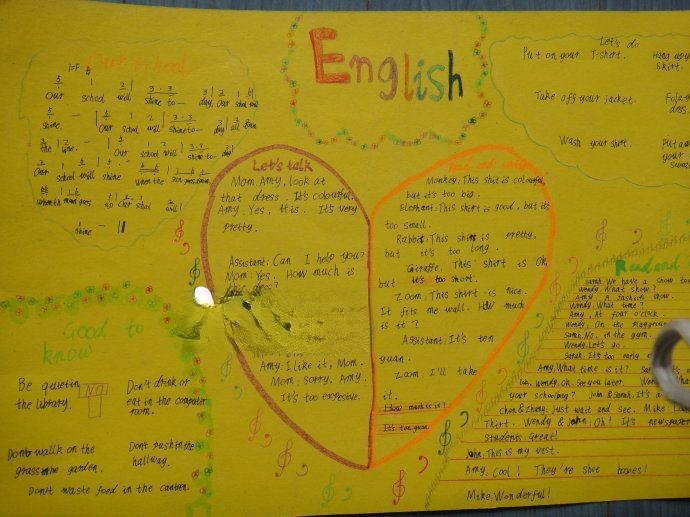 English
Our school
1=F 4/4
Our school will shine to— day, Our school will
shine. Our school will shine to— day all down
the line. Our school will shine to— day
Our school will shine when the sun goes down
when the moon Our school will
shine
Let's talk
Mom: Amy, look at
that dress. It's colourful.
Amy: Yes, It is. It's very
pretty.
Assistant: Can I help you?
Mom: Yes. How much is
Amy: I like it, Mom.
Mom: Sorry, Amy.
It's too expesive.
Read and write
Monkey: This shit is colourful,
but it's too big.
Elephant: This shirt is good, but it's
too small.
Rabbit: This shirt is pretty,
but it's too long.
Giraffe: This shirt is OK,
but it's too short.
Zoom: This shirt is nice.
It fits me wall. How much
is it?
Assistant: It's ten
yuan.
Zoom: I'll take
it.
How much is it?
It's ten yuan.
Let's do
Put on your T-shirt.
Hang up
skirt.
Take off your jacket.
Wash your shirt.
Good to
know
Be quiet in
the library.
NO
Don't drink or
eat in the computer
room.
Don't wallk on the
grass in the garden.
Don't push in the
hallway.
Don't waste food in the canteen.
Read and
Sarah: We have a show to
Wendy: What show?
Amy: A fashion show.
Wendy: What time?
Amy: At four o'clock.
Wendy: On the playground
Sarah: No, in the gym.
Wendy: Let's go.
Sarah: It's too early
Amy: What time is it? Sarah:
Wendy: OK. See you later.
your school bag? John & Sarah: It's a
chen & Zhang: Just wait and see. Mike: Look
Thirt. Wendy & John: Oh! It's newspaper
Students: Great!
John: This is my vest.
Amy: Cool! They're shoe boxes!
Mike: Wonderful!